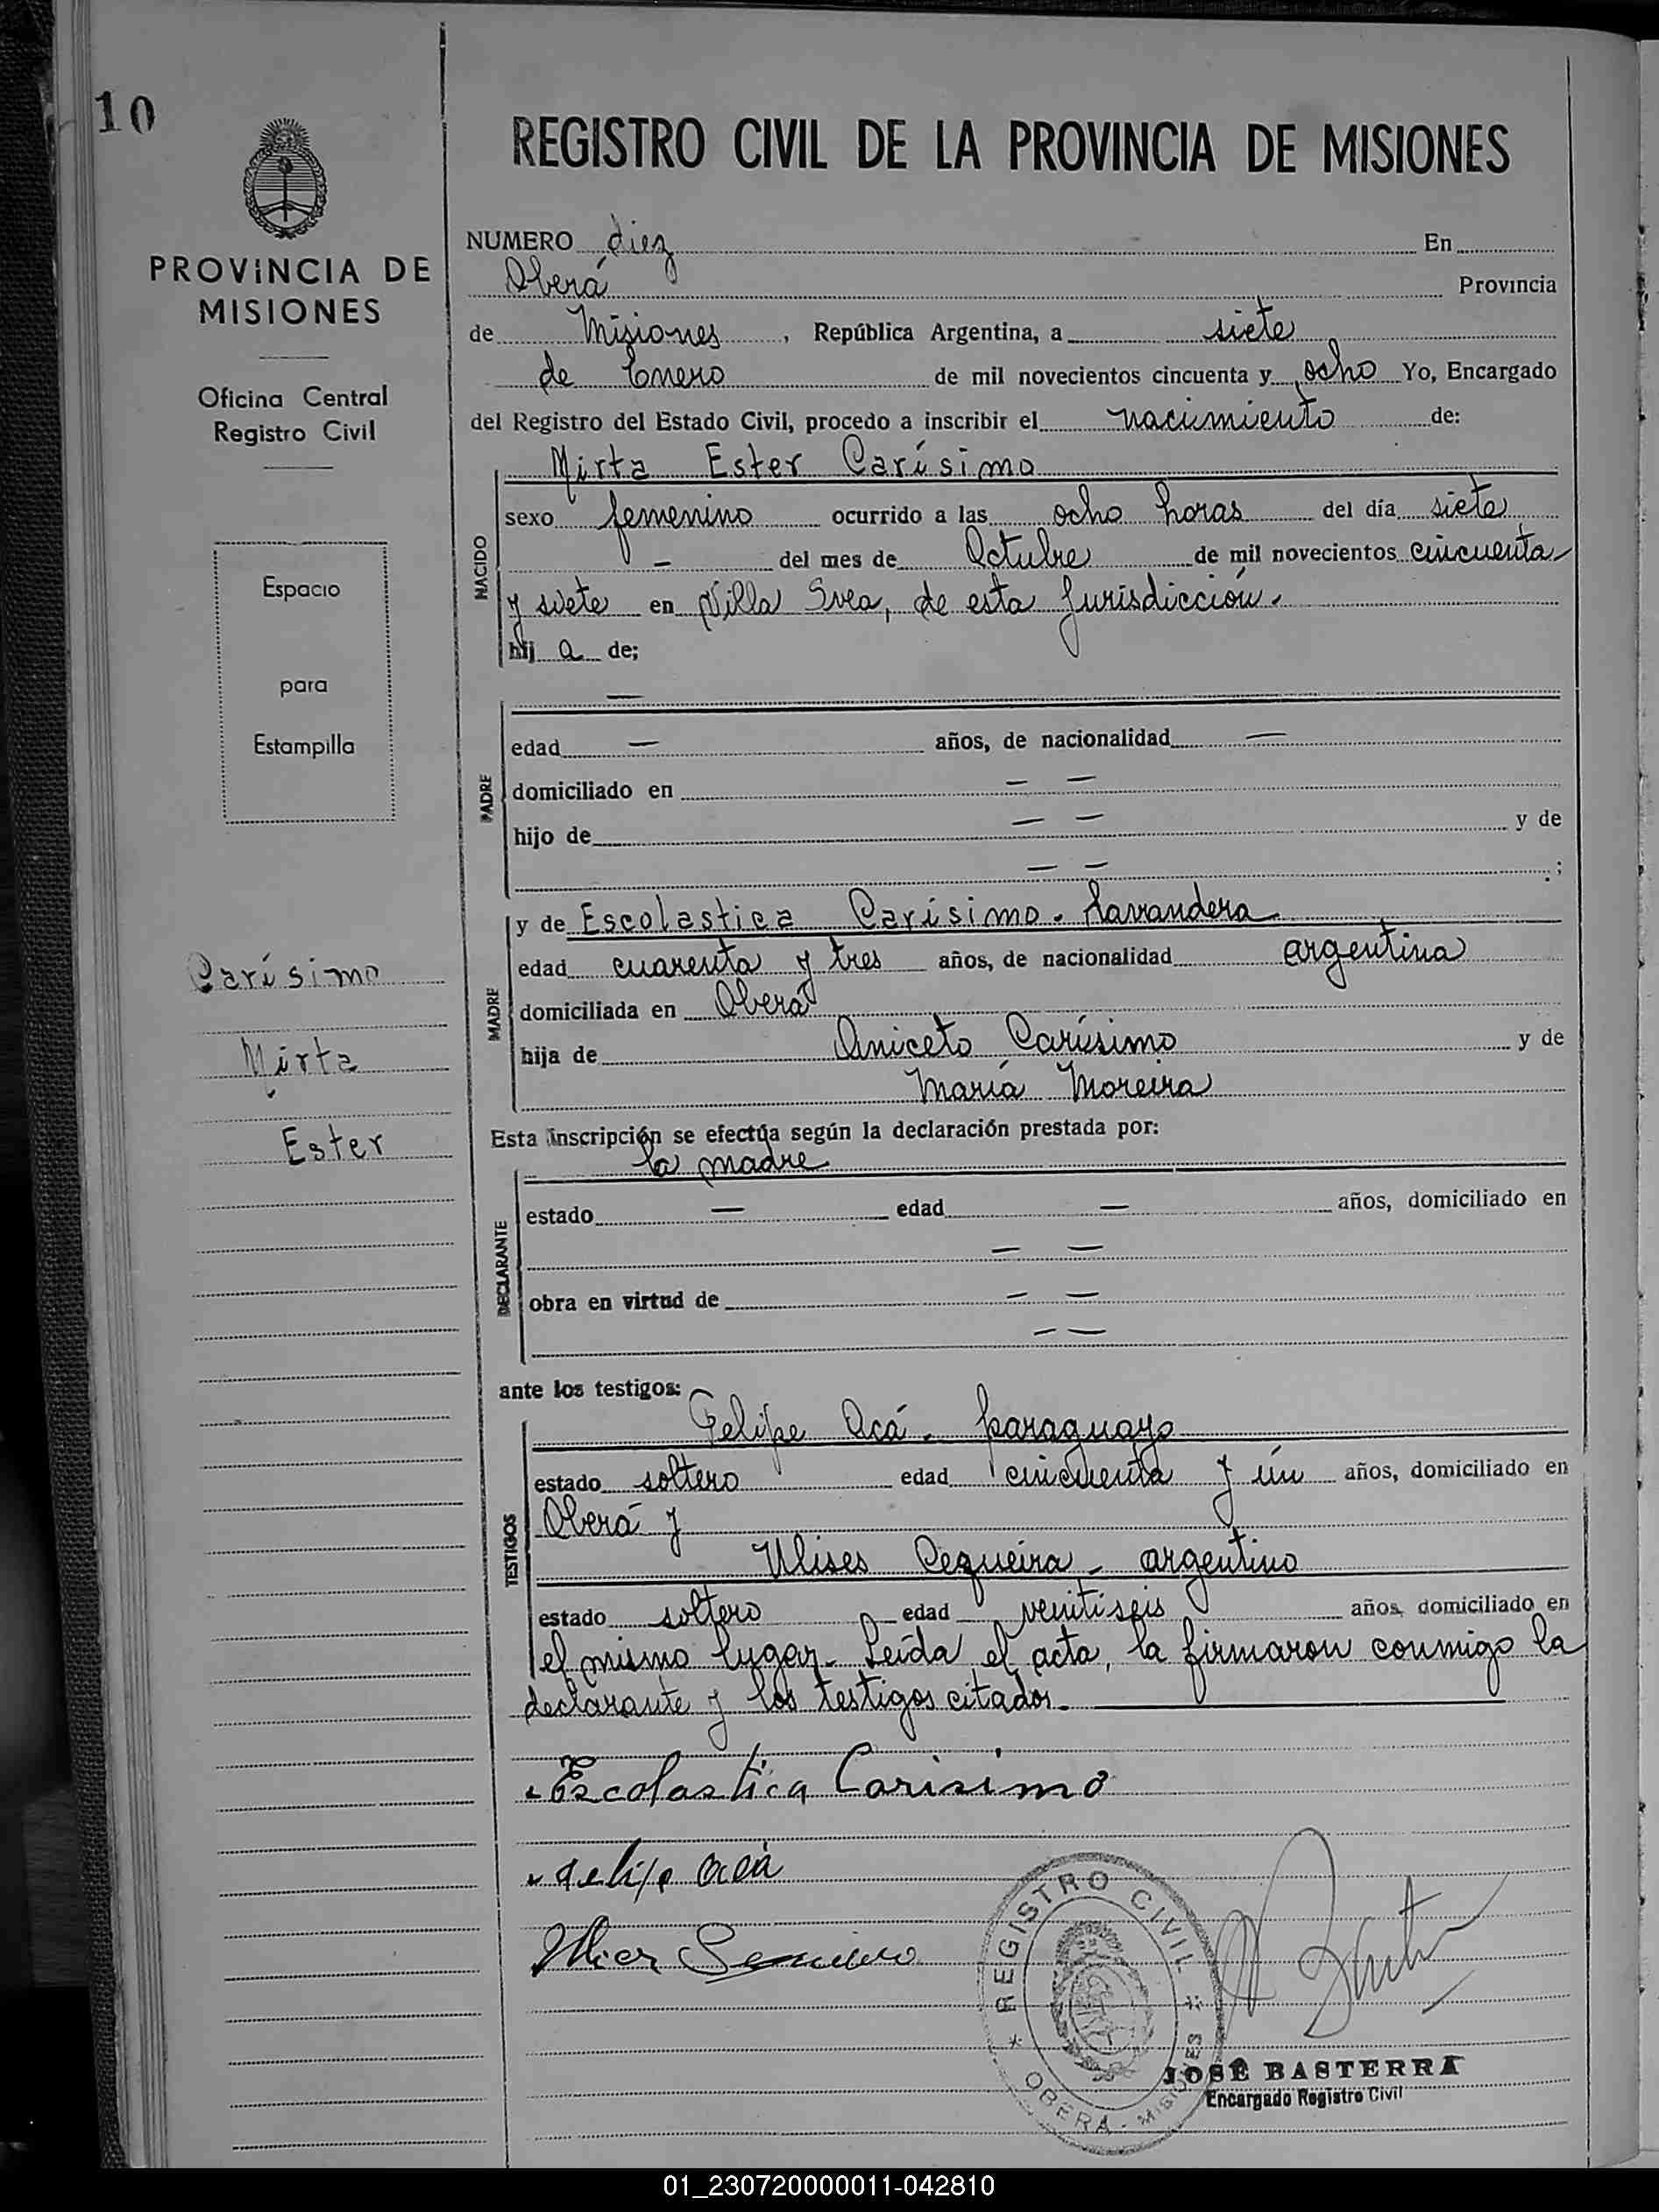 10
PROVINCIA DE
MISIONES
Oficina Central
Registro Civil
Espacio
para
Estampilla
Carísimo
Mirta
Ester
REGISTRO CIVIL DE LA PROVINCIA DE MISIONES
NUMERO diez En
Oberá Provincia
de Misiones, República Argentina, a siete
de Enero de mil novecientos cincuenta y ocho Yo, Encargado
del Registro del Estado Civil, procedo a inscribir el nacimiento de:
NACIDO
Mirta Ester Carísimo
sexo femenino ocurrido a las ocho horas del día siete
— del mes de Octubre de mil novecientos cincuenta
y siete en Villa Svea, de esta Jurisdicción.
hij a de;
PADRE
—
edad — años, de nacionalidad —
domiciliado en — —
hijo de — — y de
— — ;
MADRE
y de Escolastica Carísimo. Lavandera
edad cuarenta y tres años, de nacionalidad argentina
domiciliada en Oberá
hija de Aniceto Carísimo y de
María Moreira
Esta inscripción se efectúa según la declaración prestada por:
DECLARANTE
la madre
estado — edad — años, domiciliado en
— —
obra en virtud de — —
— —
ante los testigos:
TESTIGOS
Felipe Acá. paraguayo
estado soltero edad cincuenta y un años, domiciliado en
Oberá y
Ulises Cequeira - argentino
estado soltero edad veintiseis años, domiciliado en
el mismo lugar. Leída el acta, la firmaron conmigo la
declarante y los testigos citados.
Escolastica Carisimo
Felipe Acá
REGISTRO CIVIL
OBERA - MISIONES
JOSÉ BASTERRA
Encargado Registro Civil
01_230720000011-042810